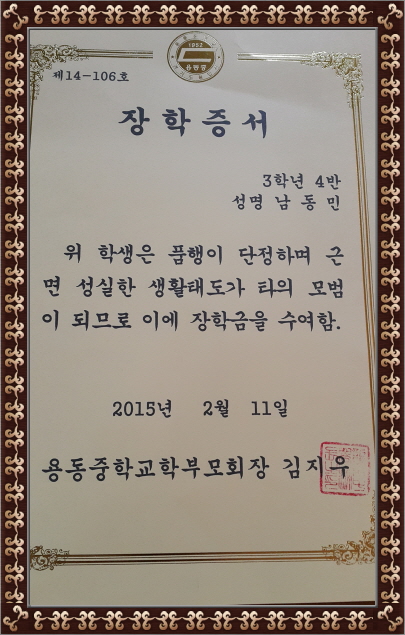 1952
용동중
제14-106호
장학증서
3학년 4반
성명 남동민
위 학생은 품행이 단정하며 근
면 성실한 생활태도가 타의 모범
이 되므로 이에 장학금을 수여함.
2015년 2월 11일
용동중학교학부모회장 김지우